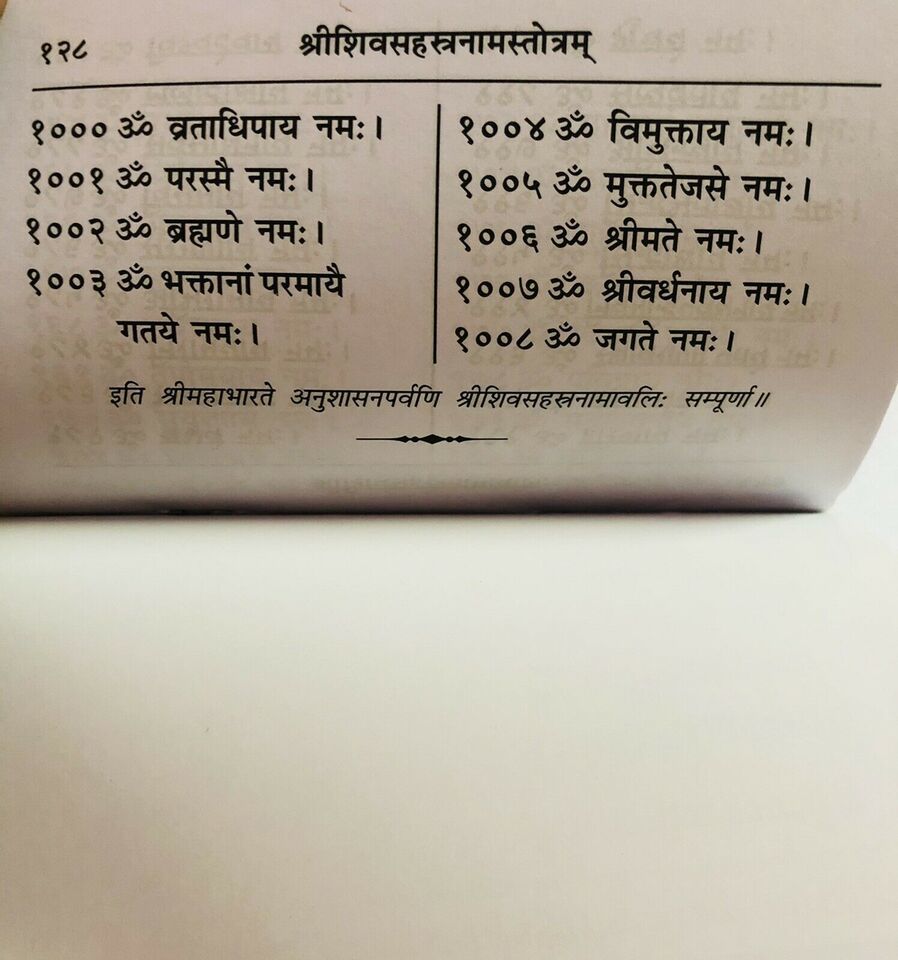 १२८ श्रीशिवसहस्त्रनामस्तोत्रम्
१००० ॐ व्रताधिपाय नमः।
१००१ ॐ परस्मै नमः।
१००२ ॐ ब्रह्मणे नमः।
१००३ ॐ भक्तानां परमायै
गतये नमः।
१००४ ॐ विमुक्ताय नमः।
१००५ ॐ मुक्ततेजसे नमः।
१००६ ॐ श्रीमते नमः।
१००७ ॐ श्रीवर्धनाय नमः।
१००८ ॐ जगते नमः।
इति श्रीमहाभारते अनुशासनपर्वणि श्रीशिवसहस्त्रनामावलिः सम्पूर्णा॥